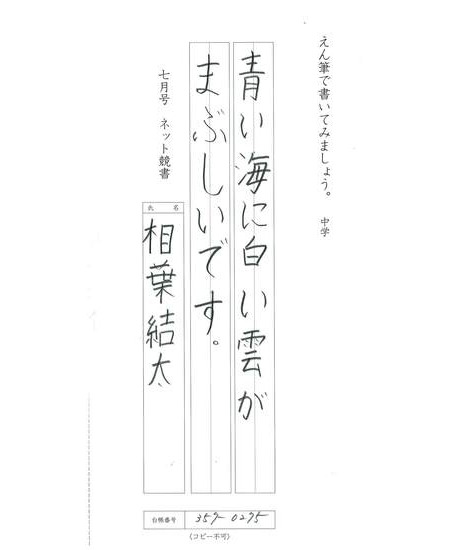 えん筆で書いてみましょう。 中学
青い海に白い雲が
まぶしいです。
七月号 ネット競書
氏名
相葉結太
台帳番号 359-0295
(コピー不可)